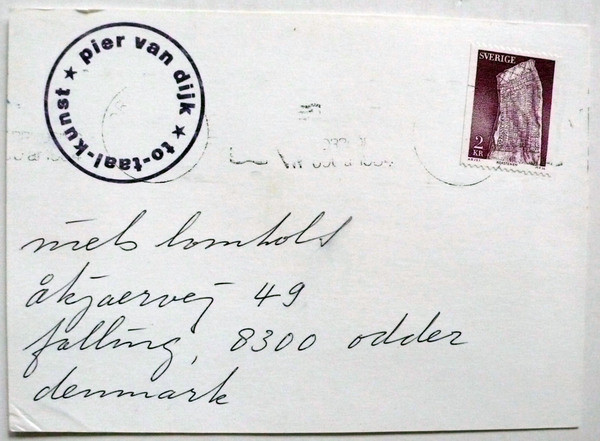 pier van dijk ★ to-taal-kunst ★
SVERIGE
2
KR
niels lomholt
åkjaervej 49
falling, 8300 odder
denmark